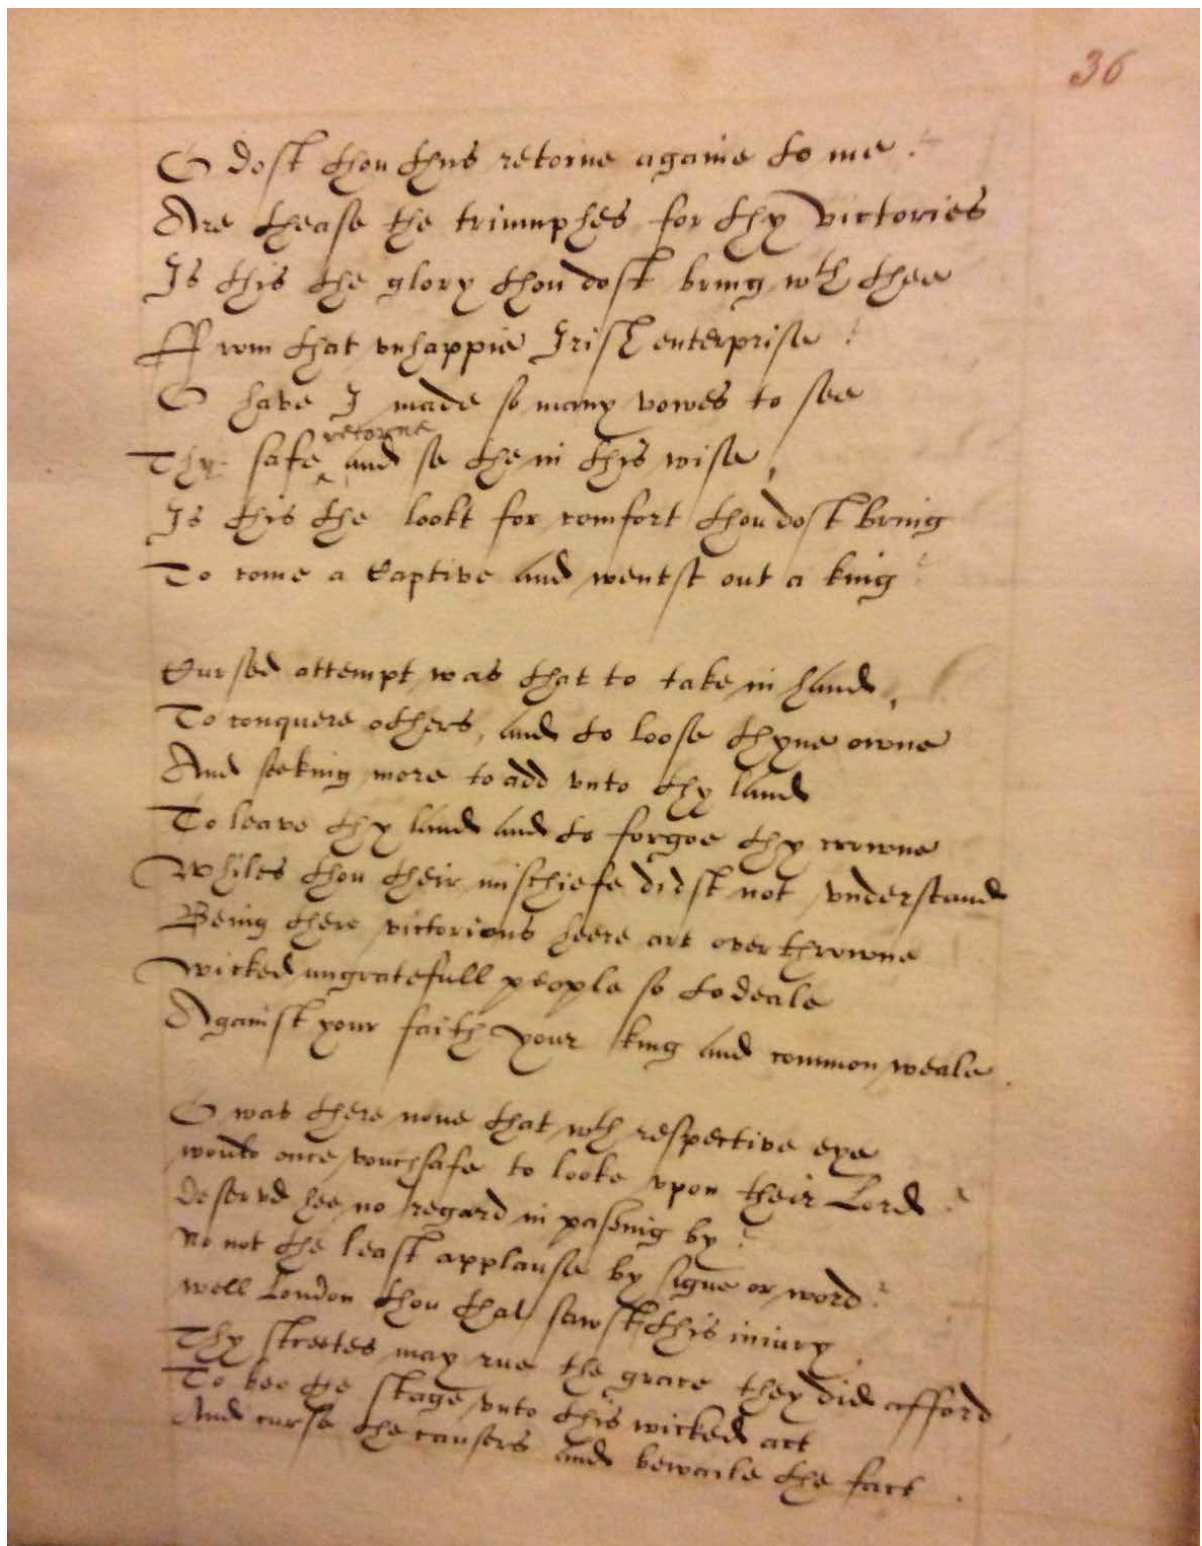 36
O dost thou thus retorne againe to me?
Are thease the triumphes for thy victories
Is this the glory thou dost bring wth thee
ffrom that vnhappie Irish enterprise?
O have I made so many vowes to see
retorne
Thy safe ^ and se the in this wise,
Is this the lookt for comfort thou dost bring
To come a Captive and wentst out a king?
Cursed attempt was that to take in hand,
To conquere others, and to loose thyne owne
And seeking more to add vnto thy land
To leave thy land and to forgoe thy crowne
Whiles thou their mischiefe didst not vnderstand
Being there victorious heere art overthrowne
wicked ungratefull people so to deale
Against your faith your king and common weale.
O was there none that wth respective eye
would once vouchsafe to looke vpon their Lord?
deservd hee no regard in passing by?
No not the least applause by signe or word?
well London thou that sawst this iniury,
Thy streetes may rue the grace they did afford
To bee the stage vnto this wicked act
And curse the causers and bewaile the fact.